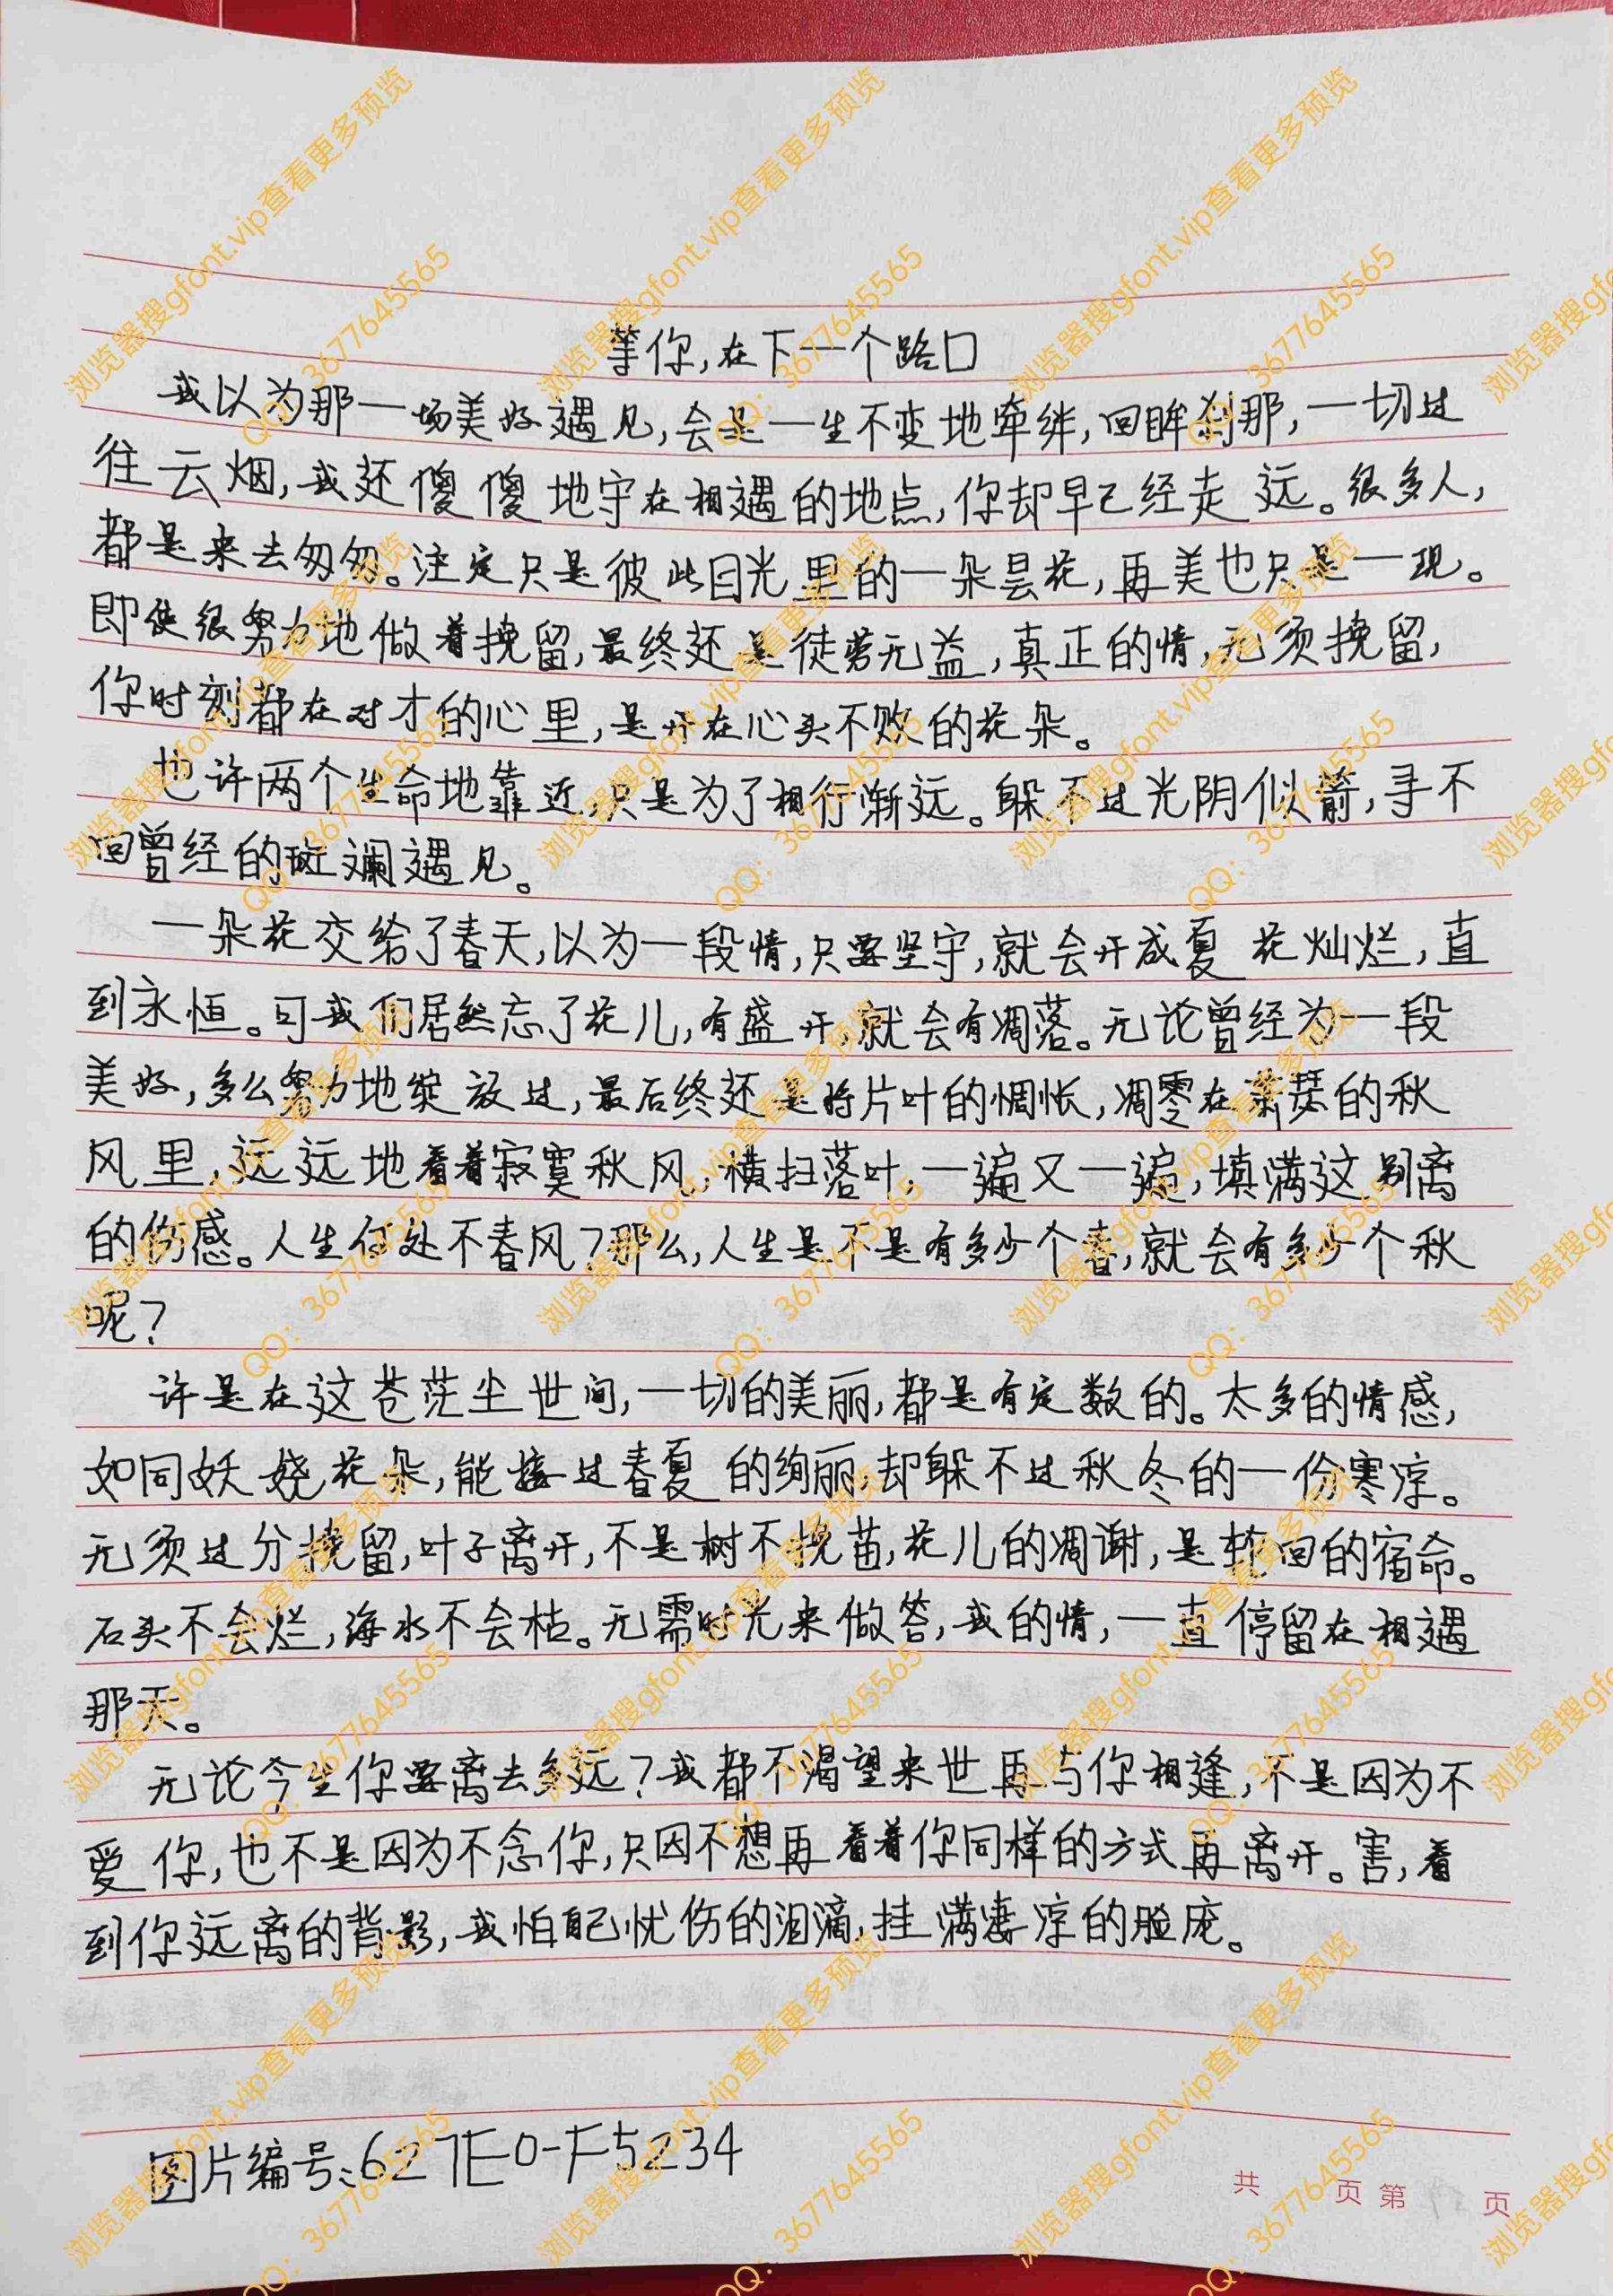 等你,在下一个路口
我以为那一场美好遇见,会是一生不变地牵绊,回眸刹那,一切过
往云烟,我还傻傻地守在相遇的地点,你却早已经走远。很多人,
都是来去匆匆。注定只是彼此目光里的一朵昙花,再美也只是一现。
即使很努力地做着挽留,最终还是徒劳无益,真正的情,无须挽留,
你时刻都在对才的心里,是开在心头不败的花朵。
也许两个生命地靠近,只是为了相行渐远。躲不过光阴似箭,寻不
回曾经的斑斓遇见。
一朵花交给了春天,以为一段情,只要坚守,就会开成夏花灿烂,直
到永恒。可我们居然忘了花儿,有盛开,就会有凋落。无论曾经为一段
美好,多么努力地绽放过,最后终还是将片叶的惆怅,凋零在萧瑟的秋
风里,远远地看着寂寞秋风,横扫落叶,一遍又一遍,填满这别离
的伤感。人生何处不春风?那么,人生是不是有多少个春,就会有多少个秋
呢?
许是在这苍茫尘世间,一切的美丽,都是有定数的。太多的情感,
如同妖娆花朵,能接过春夏的绚丽,却躲不过秋冬的一份寒凉。
无须过分挽留,叶子离开,不是树不挽苗,花儿的凋谢,是轮回的宿命。
石头不会烂,海水不会枯。无需时光来做答,我的情,一直停留在相遇
那天。
无论今生你要离去多远?我都不渴望来世再与你相逢,不是因为不
爱你,也不是因为不念你,只因不想再看着你同样的方式再离开。害,看
到你远离的背影,我怕自己忧伤的泪滴,挂满凄凉的脸庞。
图片编号:627E0-F5234
共 页 第 页
浏览器搜gfont.vip查看更多预览
QQ: 3677645565